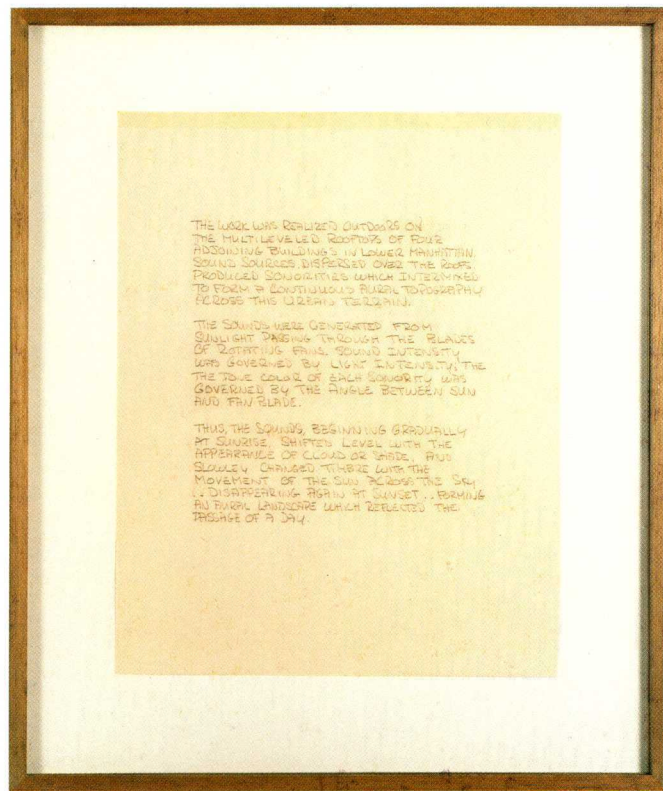 THE WORK WAS REALIZED OUTDOORS ON
THE MULTILEVELED ROOFTOPS OF FOUR
ADJOINING BUILDINGS IN LOWER MANHATTAN.
SOUND SOURCES, DISPERSED OVER THE ROOFS
PRODUCED SONORITIES WHICH INTERMIXED
TO FORM A CONTINUOUS AURAL TOPOGRAPHY
ACROSS THIS URBAN TERRAIN.
THE SOUNDS WERE GENERATED FROM
SUNLIGHT PASSING THROUGH THE BLADES
OF ROTATING FANS. SOUND INTENSITY
WAS GOVERNED BY LIGHT INTENSITY; THE
THE TONE COLOR OF EACH SONORITY WAS
GOVERNED BY THE ANGLE BETWEEN SUN
AND FAN BLADE.
THUS, THE SOUNDS, BEGINNING GRADUALLY
AT SUNRISE, SHIFTED LEVEL WITH THE
APPEARANCE OF CLOUD OR SHADE, AND
SLOWLEY CHANGED TIMBRE WITH THE
MOVEMENT OF THE SUN ACROSS THE SKY
.. DISAPPEARING AGAIN AT SUNSET .. FORMING
AN AURAL LANDSCAPE WHICH REFLECTED THE
PASSAGE OF A DAY.